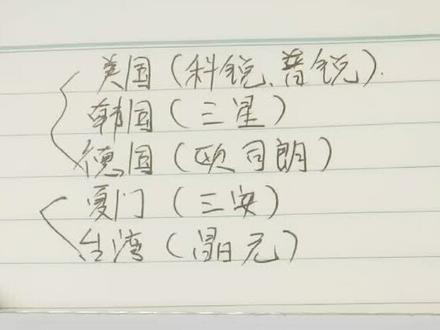 美国（科锐、普锐）.
韩国（三星）
德国（欧司朗）
厦门（三安）
台湾（晶元）